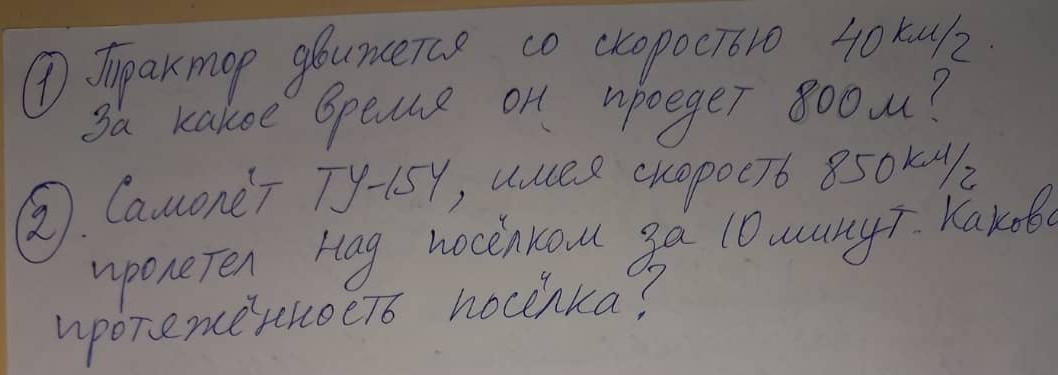 ① Трактор движется со скоростью 40 км/г.
За какое время он проедет 800 м?
② . Самолёт ТУ-154, имея скорость 850 км/г
пролетел над посёлком за 10 минут. Какова
протяжённость посёлка?